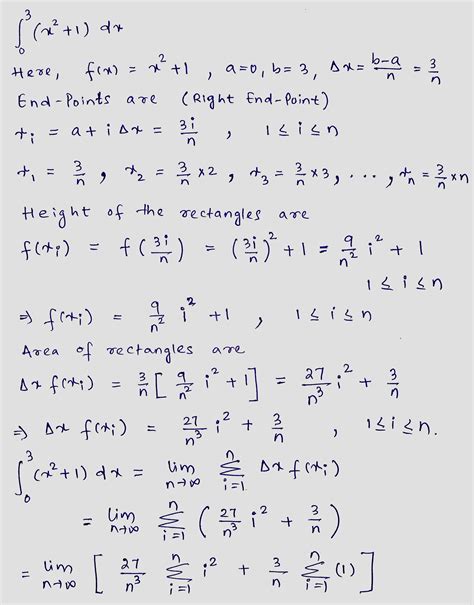 ∫₀³ (x² + 1) dx
Here, f(x) = x² + 1 , a = 0, b = 3, Δx = (b-a)/n = 3/n
End-Points are (Right End-Point)
xᵢ = a + i Δx = 3i/n , 1 ≤ i ≤ n
x₁ = 3/n , x₂ = 3/n × 2 , x₃ = 3/n × 3 , . . . , xₙ = 3/n × n
Height of the rectangles are
f(xᵢ) = f(3i/n) = (3i/n)² + 1 = 9/n² i² + 1
1 ≤ i ≤ n
⇒ f(xᵢ) = 9/n² i² + 1 , 1 ≤ i ≤ n
Area of rectangles are
Δx f(xᵢ) = 3/n [ 9/n² i² + 1 ] = 27/n³ i² + 3/n
⇒ Δx f(xᵢ) = 27/n³ i² + 3/n , 1 ≤ i ≤ n.
∫₀³ (x² + 1) dx = lim n→∞ Σ i=1 n Δx f(xᵢ)
= lim n→∞ Σ i=1 n ( 27/n³ i² + 3/n )
= lim n→∞ [ 27/n³ Σ i=1 n i² + 3/n Σ i=1 n (1) ]